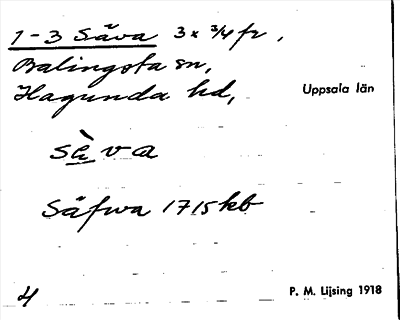 1-3 Säva 3 x 3/4 fr.
Balingsta sn,
Hagunda hd,
Uppsala län
sèva
Säfwa 1715 kb
4
P. M. Lijsing 1918